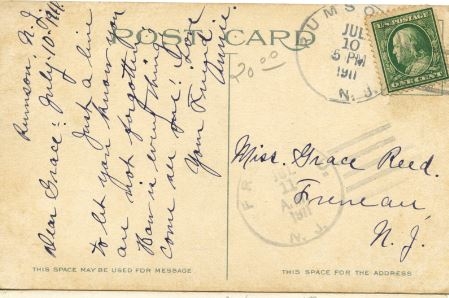 POST CARD
Rumson, N.J.
Dear Grace: July-10-1911.
Just a line
to let you know you
are not forgotten.
How is everything
come see one! Love
Your Friend
Annie.
20.00
RUMSON
JUL
10
5 PM
1911
N. J.
U.S. POSTAGE
ONE CENT
Miss. Grace Reed.
Freneau
N. J.
JUL
11
A.M
1911
N. J.
THIS SPACE MAY BE USED FOR MESSAGE
THIS SPACE IS FOR THE ADDRESS